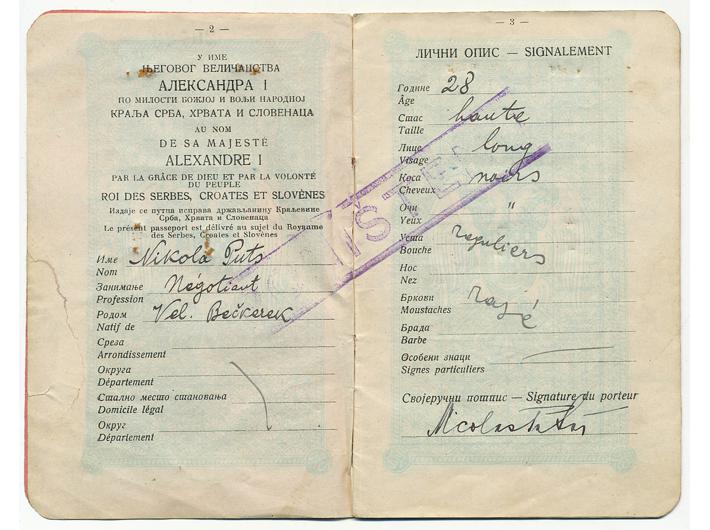 — 2 —
У ИМЕ
ЊЕГОВОГ ВЕЛИЧАНСТВА
АЛЕКСАНДРА I
ПО МИЛОСТИ БОЖЈОЈ И ВОЉИ НАРОДНОЈ
КРАЉА СРБА, ХРВАТА И СЛОВЕНАЦА
AU NOM
DE SA MAJESTÉ
ALEXANDRE I
PAR LA GRÂCE DE DIEU ET PAR LA VOLONTÉ
DU PEUPLE
ROI DES SERBES, CROATES ET SLOVÈNES
Издаје се путна исправа држављанину Краљевине
Срба, Хрвата и Словенаца
Le présent passeport est délivré au sujet du Royaume
des Serbes, Croates et Slovènes
Име Nikola Puts
Nom
Занимање Négotiant
Profession
Родом Vel. Bečkerek
Natif de
Среза
Arrondissement
Округа
Département
Стално место становања
Domicile légal
Округ
Département
— 3 —
ЛИЧНИ ОПИС — SIGNALEMENT
Године 28
Âge
Стас haute
Taille
Лице long
Visage
Коса noirs
Cheveux
Очи "
Yeux
Уста reguliers
Bouche
Нос
Nez
Бркови rajé
Moustaches
Брада
Barbe
Особени знаци
Signes particuliers
Својеручни потпис — Signature du porteur